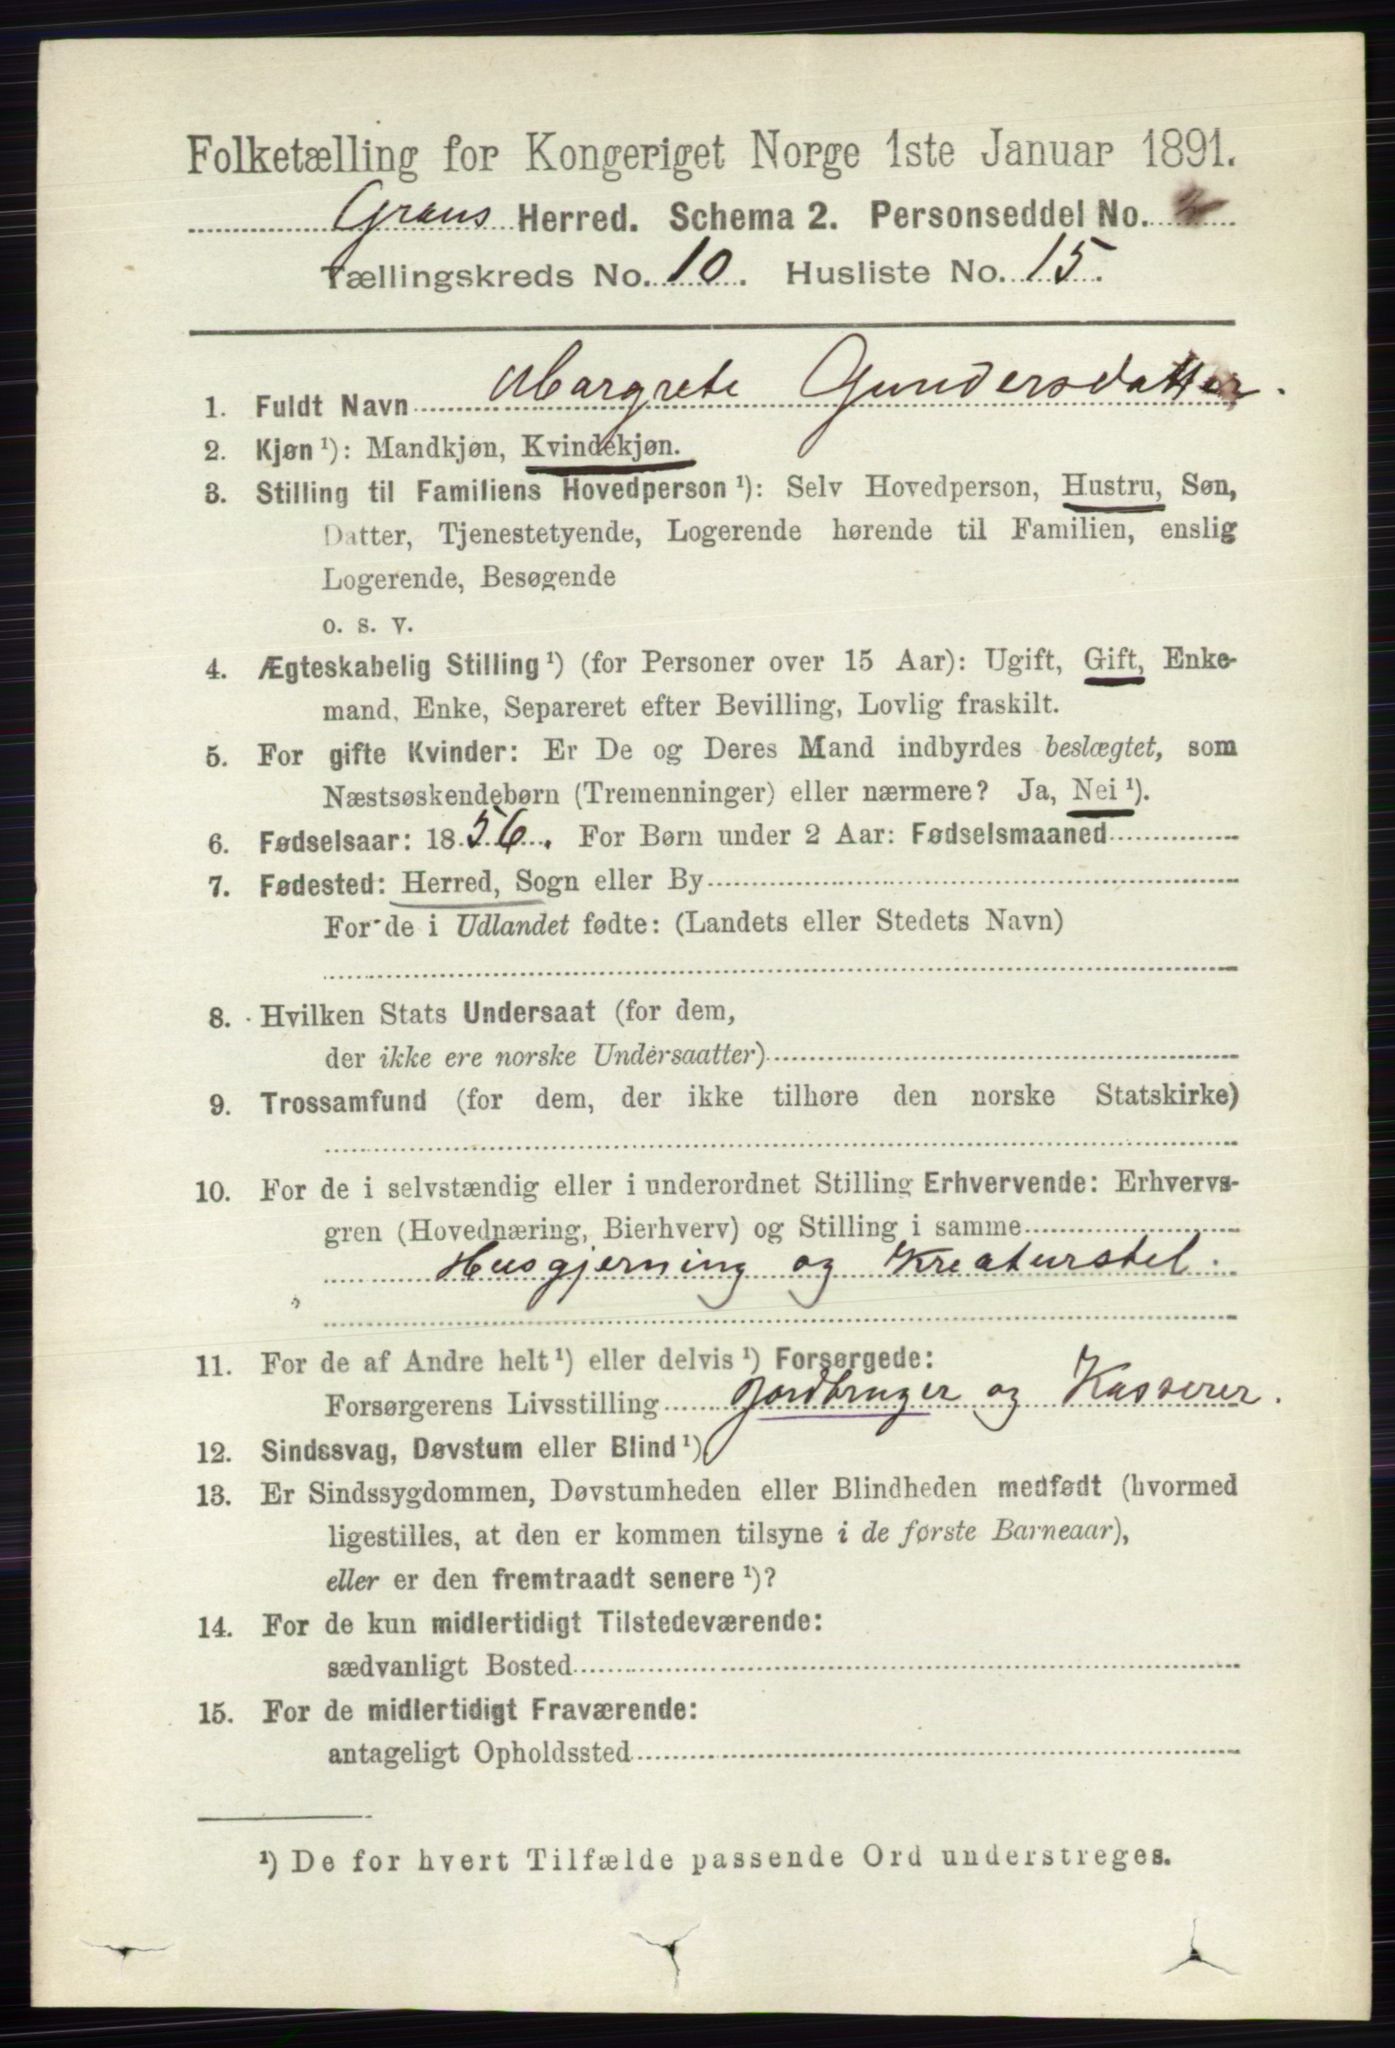 Folketælling for Kongeriget Norge 1ste Januar 1891.
Grans Herred. Schema 2. Personseddel No.
Tællingskreds No. 10. Husliste No. 15.
1. Fuldt Navn Margrete Gundersdatter.
2. Kjøn ¹): Mandkjøn, Kvindekjøn.
3. Stilling til Familiens Hovedperson ¹): Selv Hovedperson, Hustru, Søn,
Datter, Tjenestetyende, Logerende hørende til Familien, enslig
Logerende, Besøgende
o. s. v.
4. Ægteskabelig Stilling ¹) (for Personer over 15 Aar): Ugift, Gift, Enke-
mand, Enke, Separeret efter Bevilling, Lovlig fraskilt.
5. For gifte Kvinder: Er De og Deres Mand indbyrdes beslægtet, som
Næstsøskendebørn (Tremenninger) eller nærmere? Ja, Nei ¹).
6. Fødselsaar: 1856. For Børn under 2 Aar: Fødselsmaaned
7. Fødested: Herred, Sogn eller By
For de i Udlandet fødte: (Landets eller Stedets Navn)
8. Hvilken Stats Undersaat (for dem,
der ikke ere norske Undersaatter)
9. Trossamfund (for dem, der ikke tilhøre den norske Statskirke)
10. For de i selvstændig eller i underordnet Stilling Erhvervende: Erhvervs-
gren (Hovednæring, Bierhverv) og Stilling i samme
Husgjerning og Kreaturstel.
11. For de af Andre helt ¹) eller delvis ¹) Forsørgede:
Forsørgerens Livsstilling Jordbruger og Kasserer.
12. Sindssvag, Døvstum eller Blind ¹).
13. Er Sindssygdommen, Døvstumheden eller Blindheden medfødt (hvormed
ligestilles, at den er kommen tilsyne i de første Barneaar),
eller er den fremtraadt senere ¹)?
14. For de kun midlertidigt Tilstedeværende:
sædvanligt Bosted
15. For de midlertidigt Fraværende:
antageligt Opholdssted
¹) De for hvert Tilfælde passende Ord understreges.